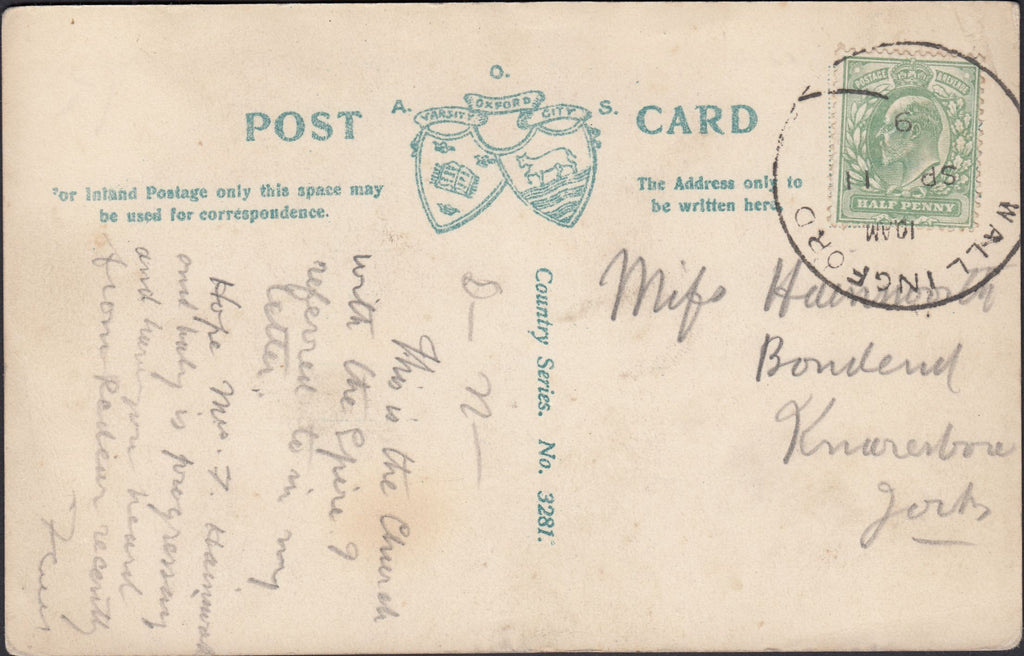 O.
A. VARSITY OXFORD CITY S.
POST CARD
For Inland Postage only this space may
be used for correspondence.
The Address only to
be written here
POSTAGE REVENUE
HALF PENNY
WALLINGFORD
10 AM
9 SP 11
Country Series. No. 3281.
Miss
Bondend
Knaresboro
Yorks
D — N —
This is the Church
with the Spire I
referred to in my
letter.
Hope Mrs. F.
and baby is progressing
and have you heard
from recently